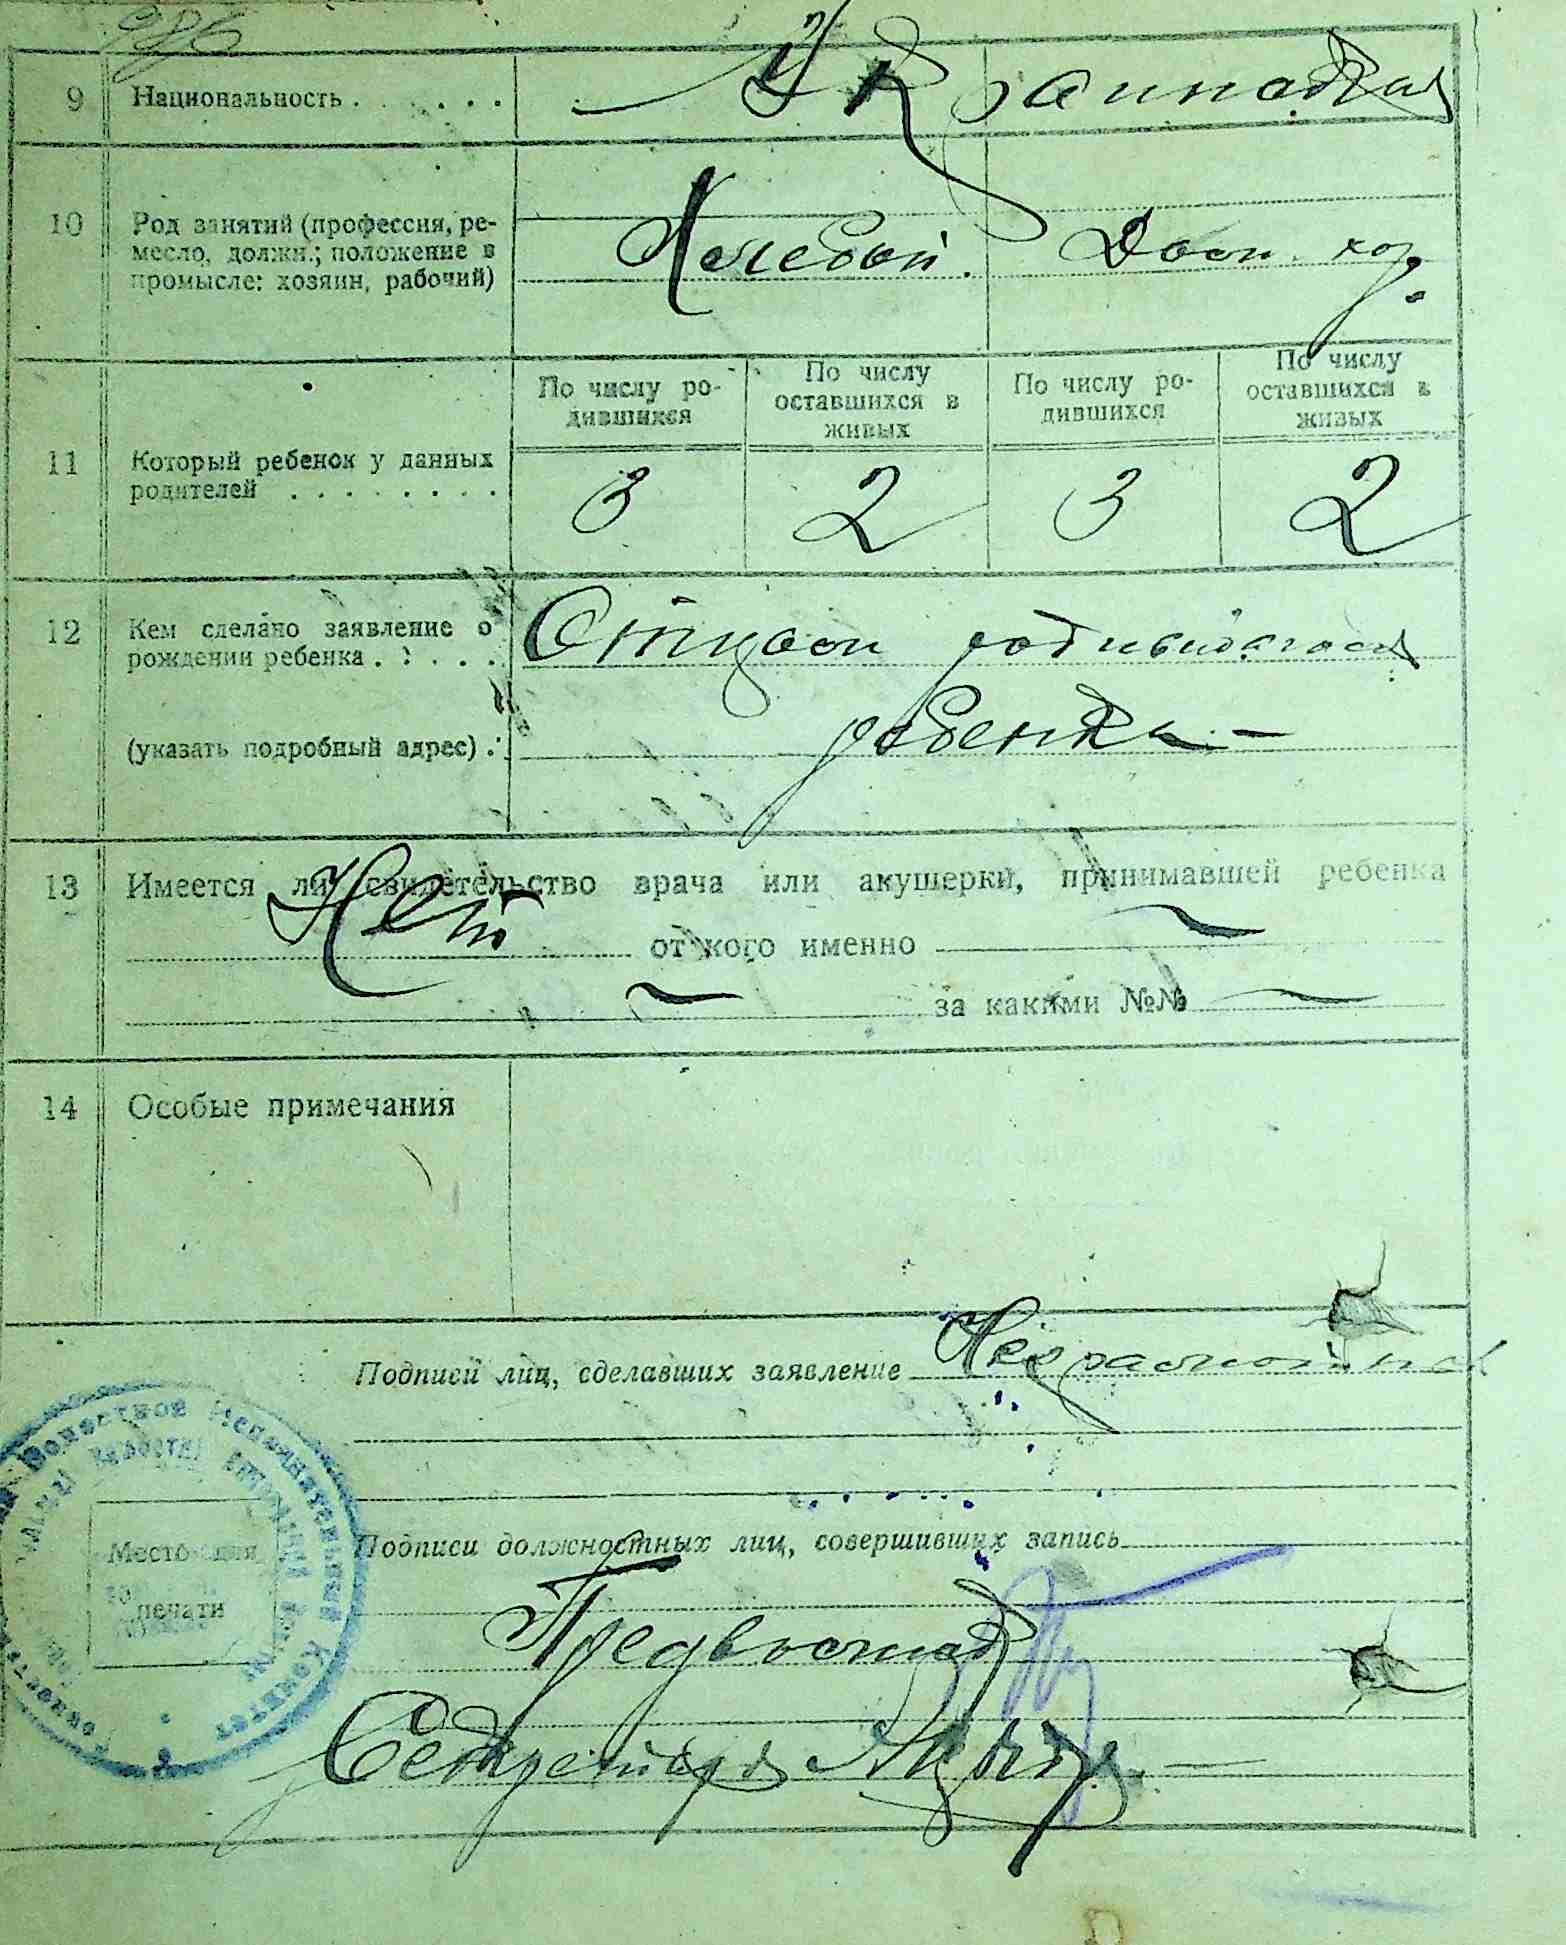 9 Национальность . . . . . . Украинская
10 Род занятий (профессия, ре-
месло, должн.; положение в
промысле: хозяин, рабочий)
Дом. хоз.
По числу ро-
дившихся
По числу
оставшихся в
живых
По числу ро-
дившихся
По числу
оставшихся в
живых
11 Который ребенок у данных
родителей . . . . . . . .
3 2 3 2
12 Кем сделано заявление о
рождении ребенка . . . . .
(указать подробный адрес) .
Отцом родившагося
ребенка —
13 Имеется ли свидетельство врача или акушерки, принимавшей ребенка
Нет от кого именно —
— за какими №№ —
14 Особые примечания
Подписи лиц, сделавших заявление Неграмотный
Подписи должностных лиц, совершивших запись
Место для
печати
Секретарь
Волостной Исполнительный Комитет